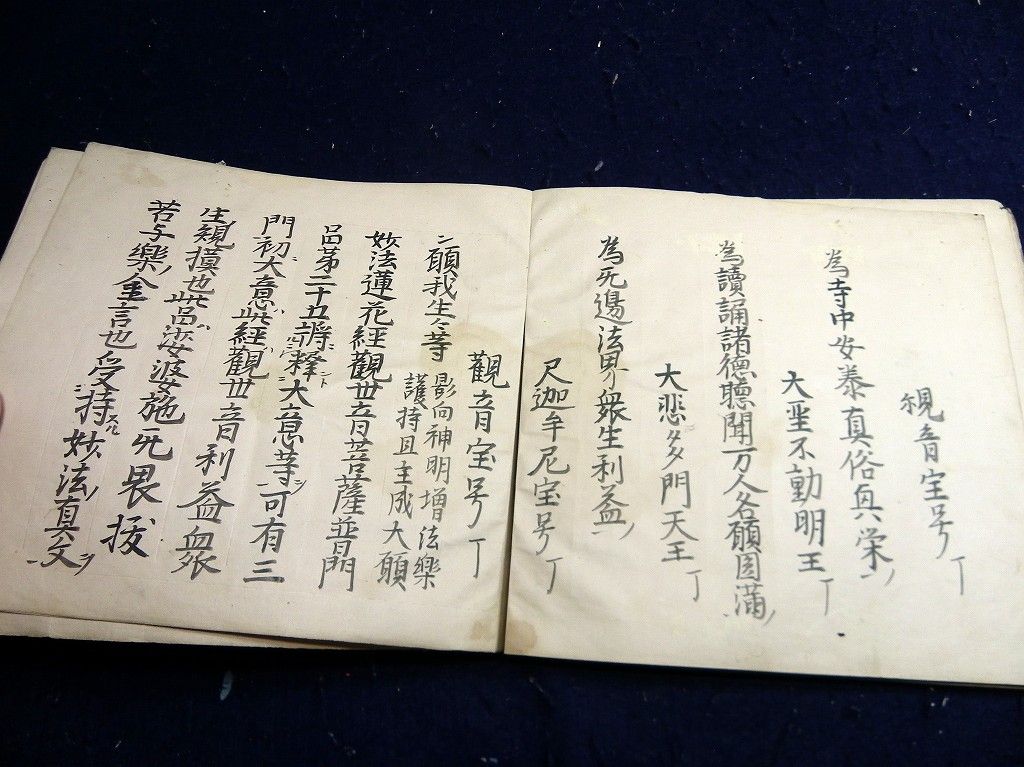 観音宝号丁
為寺中安泰真俗具栄ノ
大聖不動明王丁
為讀誦諸德聴聞万人各願圓満ノ
大悲多門天王丁
為无邊法界衆生利益ノ
尺迦牟尼宝号丁
觀音宝号丁
二願我生々等
影向神明增法樂
護持旦主成大願
妙法蓮花經觀世音菩薩普門
品第二十五将釋大意等可有三
門初大意此經觀世音利益衆
生規摸也此品娑婆施无畏拔
苦与樂金言也受持妙法真文